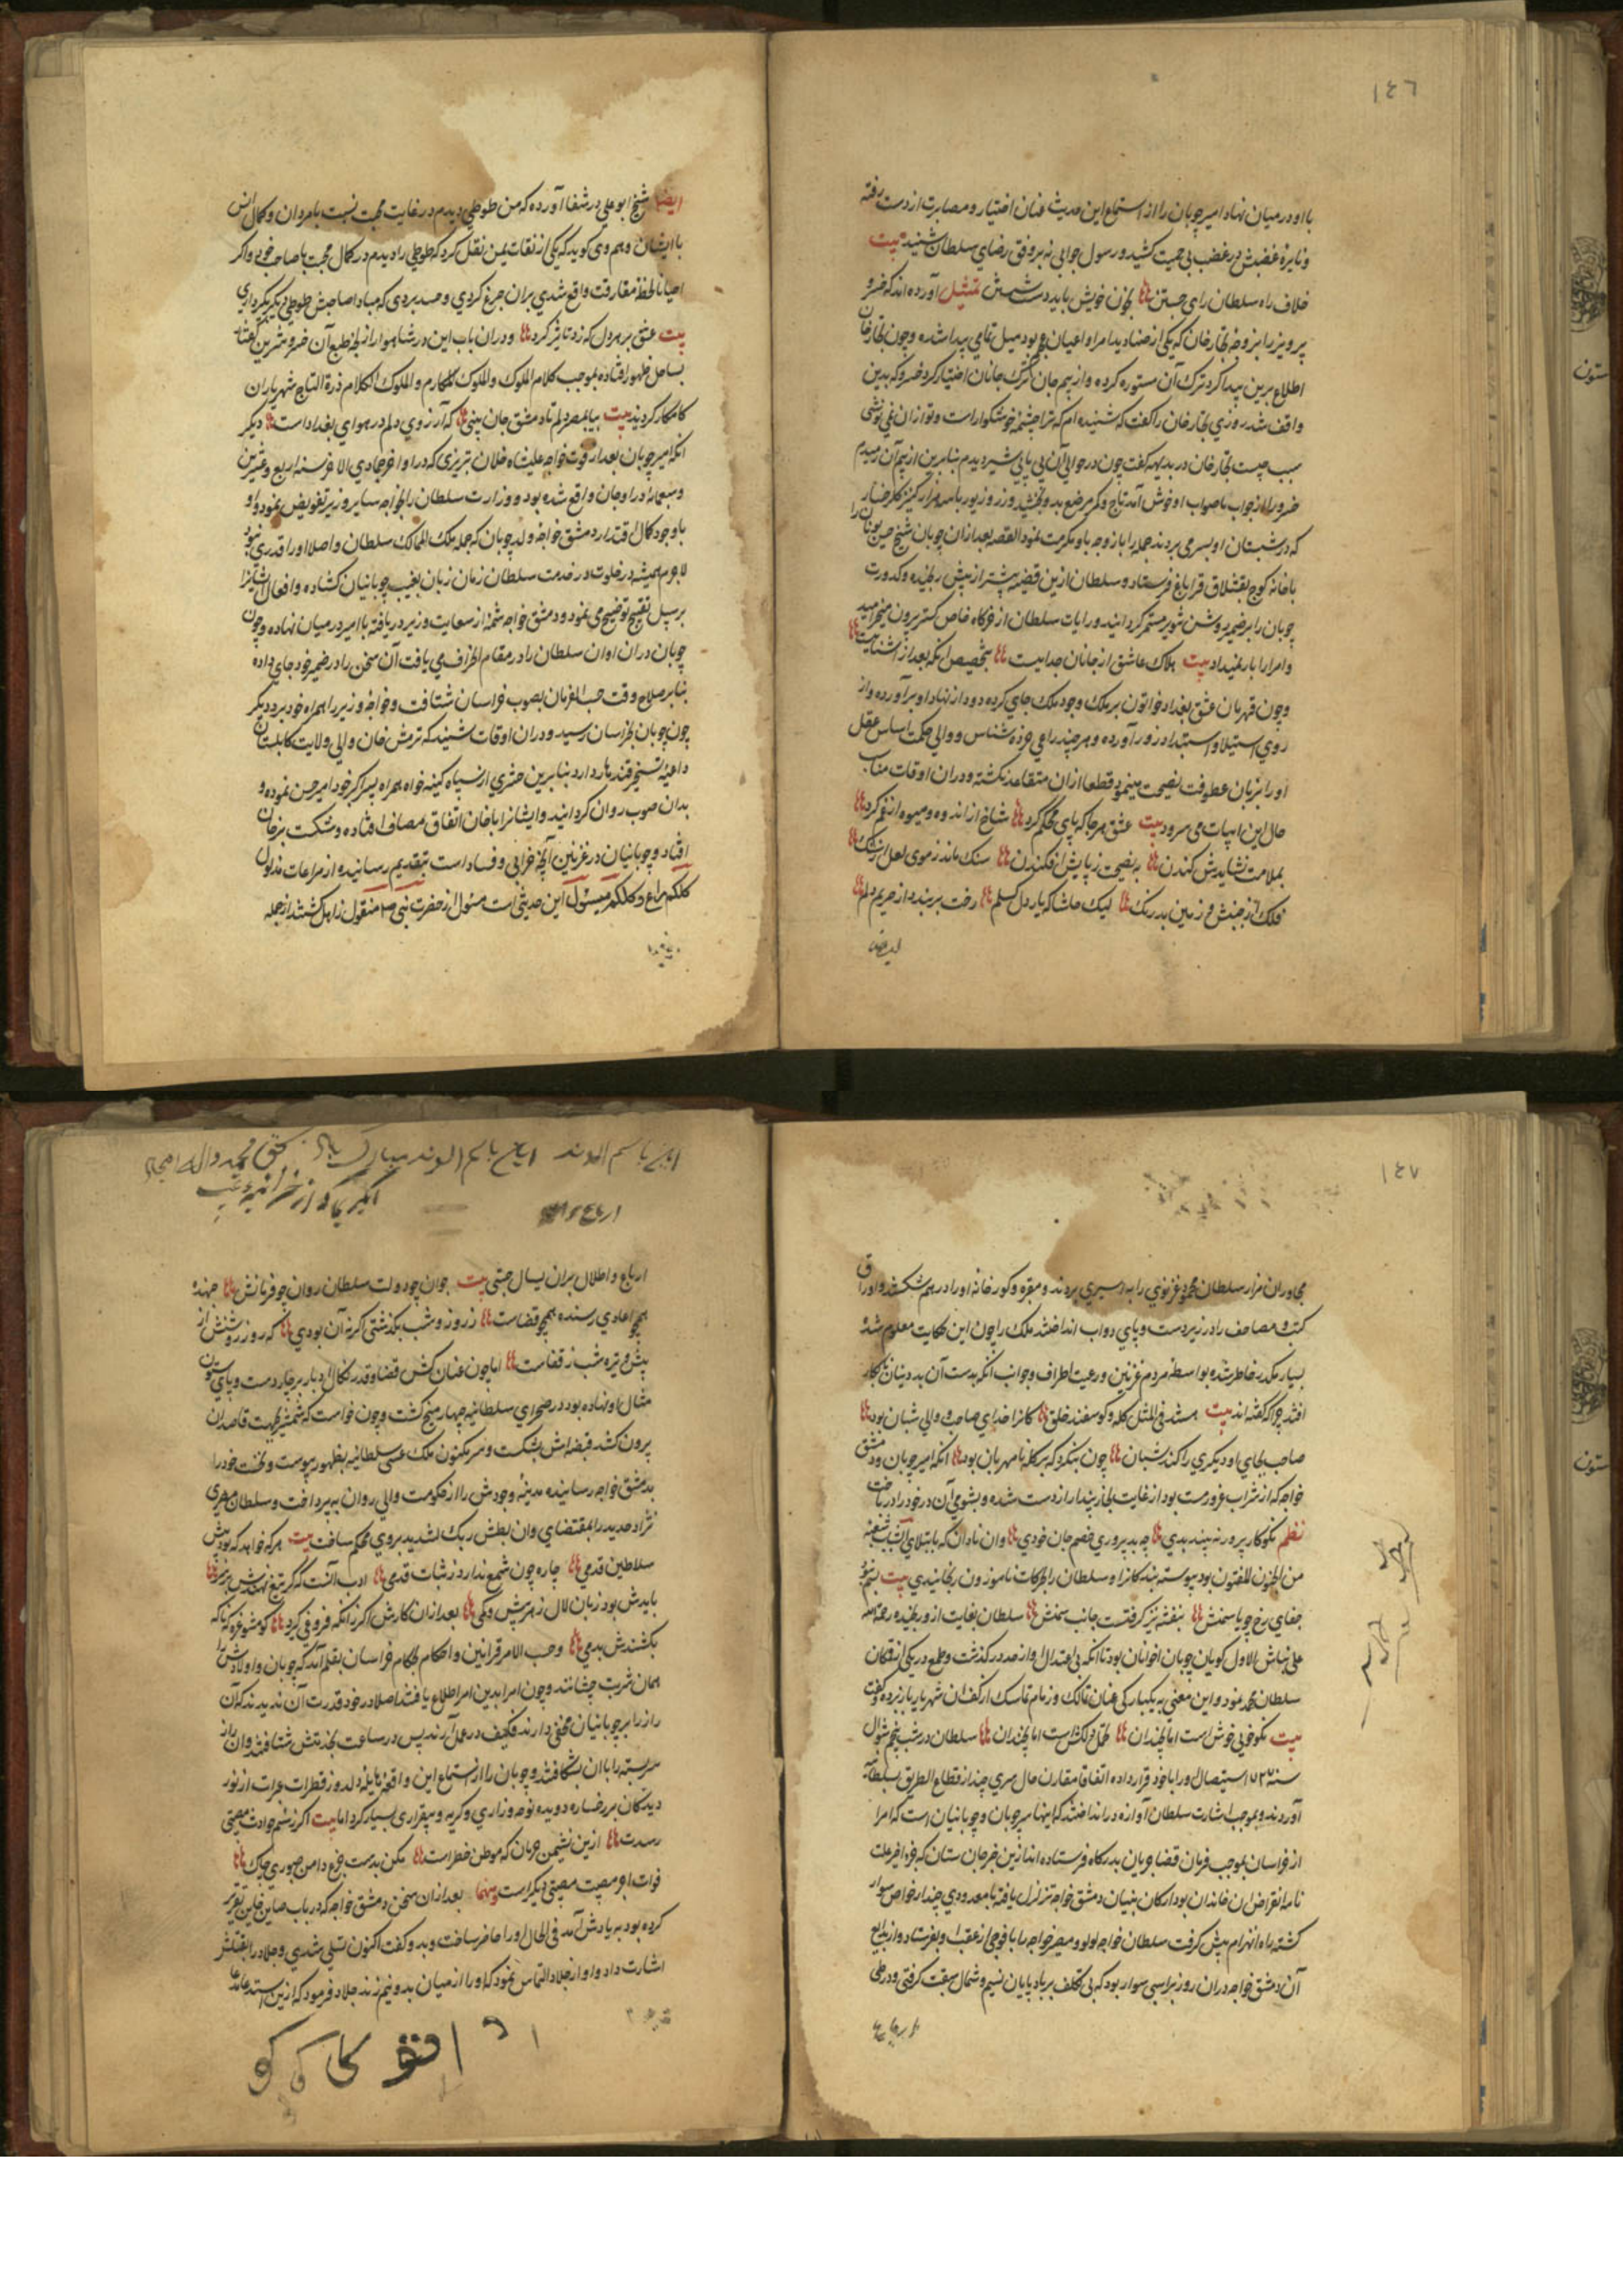 ١٤٦
با او در میان نهاد امیر چوبان را از استماع این حدیث عنان اختیار و مصابرت از دست رفته
و نایره غضبش در غضب بی حمیت کشید و رسول جوابی نه بر وفق رضای سلطان شنید بیت
خلاف راه سلطان رای جستن بخون خویش باید دست شستن تمثیل آورده اند که خسرو
پرویز را بزوجه نخارخان که یکی از صنادید امرا و اعیان عجم بود میل تمامی پیدا شده و چون نخارخان
اطلاع برین پیدا کرد ترک آن مستوره کرده و از بیم جان ترک جانان اختیار کرد خسرو که بدین
واقف شد روزی نخارخان را گفت که شنیده ام که ترا چشمه خوشگوار است و تو از ان نمی نوشی
سبب چیست نخارخان در بدیهه گفت چون در حوالی آن پی پای شیر دیدم بنابرین از بیم آن رمیدم
خسرو را از جواب با صواب او خوش آمد تاج و کمر مرصع بدو بخشید و زر و زیور با سه هزار کنیز گلرخسار
که در شبستان او بسر می بردند جمله را با زوجه باو مکرمت نمود القصه بعد از ان چوبان شیخ حسن نویان را
با خانه کوچ بقشلاق قراباغ فرستاد و سلطان ازین قضیه پیشتر از پیش رنجیده و کدورت
چوبان را بر ضمیر روشن تنویر مستمر گردانید و رایات سلطان از خرگاه خاص کمتر بیرون میخرامید
و امرا را بار نمیداد بیت هلاک عاشق از جانان جداییست بتخصیص آنکه بعد از آشناییست
و چون قهرمان عشق بغداد خواتون بر ملک وجود ملک جای کرده دود از نهاد او برآورده و از
روی استیلا و استبداد زور آورده و هر چند راعی خرده شناس و والی حکمت اساس عقل
او را بزبان عطوفت نصیحت مینمود قطعا ازان متقاعد نکشته و دران اوقات مناسب
حال این ابیات می سرود بیت عشق هر جا که پای محکم کرد شاخ از اندوه و میوه از غم کرد
بملامت نشایدش کندن به نصیحت زپایش افکندن سنک ماند زموی لعل از رشک
فلک از جنبش و زمین بدرنک لیک حاشا که یار دل گسلم رخت بربندد از حریم دلم
ایضا
ایضا شیخ ابو علی در شفا آورده که من طوطی دیدم در غایت محبت نسبت بامردان و کمال انس
با ایشان و هم وی گوید که یکی از ثقات یمن نقل کرد که طوطی را دیدم در کمال محبت با صاحب خود و اگر
احیانا لحظه مفارقت واقع شدی بران جزع کردی و حسد بردی که مبادا صاحبش طوطی دیگر نگهداری
بیت عشق بر هر دل که زد تاثیر کرد و دران باب این در شاهوار از لجه طبع آن خسرو شیرین گفتار
بساحل ظهور افتاده بموجب کلام الملوک ملوک الکلام درة التاج شهریاران
کامکار گردید بیت بیا بمصر دلم تا دمشق جان بینی که آرزوی دلم در هوای بغداد است دیگر
انکه امیر چوبان بعد از فوت خواجه علیشاه فلان تبریزی که در اواخر جمادی الاخر سنه اربع و عشرین
و سبعمایه در اوجان واقع شده بود و وزارت سلطان را بخواجه صاین وزیر تفویض نمود و او
با وجود کمال اقتدار دمشق خواجه ولد چوبان که جمله ملک الممالک سلطان و اصلا او را قدری نبود
لاجرم همیشه در خلوت در خدمت سلطان زمان زبان بغیبت چوبانیان کشاده و افعال ایشانرا
برسبیل تقبیح توضیح می نمود و دمشق خواجه شمه از سعایت وزیر دریافته با امیر در میان نهاده و چون
چوبان دران اوان سلطان را در مقام انحراف می یافت آن سخن را در ضمیر خود جای داده
بنابر صلاح وقت حسب الفرمان بصوب خراسان شتافت و خواجه وزیر را همراه خود برد دیگر
چون چوبان بخراسان رسید و دران اوقات شنید که ترمش خان والی ولایت کابلستان
داعیه تسخیر قندهار دارد بنابرین حشری از سپاه کینه خواه همراه پسر اکبر خود امیر حسن نموده و
بدان صوب روان گردانید و ایشانرا با خان اتفاق مصاف افتاده و شکست بر خان
افتاد و چوبانیان در غزنین آنچه خرابی و فساد است بتقدیم رسانیده از مراعات مدلول
کلکم راع و کلکم مسئول این حدیثی است مسئول از حضرت نبی منقول زاهل گشتند از جمله
١٤٧
مجاوران مزار سلطان محمود غزنوی را به اسیری بردند و مقبره و گور خانه او را در هم شکسته و اوراق
کتب و مصاحف را در زیر دست و پای دواب انداختند ملک را چون این حکایت معلوم شد
بسیار مکدر خاطر شده بواسطه مردم غزنین و رعیت اطراف و جوانب انکه بدست آن بددینان تبه کار
افتد چرا که گفته اند بیت هستند فی المثل گله و گوسفند خلق کانرا خدای صاحب و والی شبان بود
صاحب بجای او دیگری را کند شبان چون بنگرد که بر گله نامهربان بود انکه امیر چوبان و دمشق
خواجه که از شراب غرور مست بود از غایت پندار از دست شده و بشومی آن در خود را در باخت
نظم نکوکار پرور نه بیند بدی چو بد پروری خصم جان خودی وان نادان که بابتلای الشباب شعبة
من الجنون مفتون بود پیوسته بندکانرا و سلطان را بحرکات ناموزون رنجانیدی بیت
جفای رخ چو یا سمنش بنفشه نیز گرفتست جانب سمنش سلطان بغایت از و رنجیده رحمة الله
علی نباش الاول گویان چوبان اخوانان بود تا انکه بی اعتدال او از حد در گذشت و طمع در یکی از تقکان
سلطان محمد نمود و این معنی به یکبارگی عنان تمالک و زمام تماسک از کف ان شهریار بازبرده و گفت
بیت نکو خویی خوش است اما نچندان تحمل دلکش است اما نچندان سلطان در شب پنجم شوال
سنه ٧٢٧ استیصال او را با خود قرار داده اتفاقا مقارن حال سری چند از قطاع الطریق بسلطانیه
آوردند و بموجب اشارت سلطان آوازه در انداختند که اینها سر چوبان و چوبانیان است که امرا
از خراسان بموجب فرمان قضا جریان بدرگاه فرستاده اند ازین خبر جان ستان که جزو اخر علت
نامه انقراض ان خاندان بود ارکان بنیان دمشق خواجه تزلزل یافته با معدودی چند از خواص سوار
گشته راه انهزام پیش گرفت سلطان خواجه لولو و مصر خواجه را با فوجی از عقب او بفرستاد و از بدایع
آن دمشق خواجه دران روز بر اسبی سوار بود که بی تکلف بر باد پایان نسیم و شمال سبقت گرفتی و در طی
ارباع
ارباع و اطلال بران یسال جستی بیت جوان چو دولت سلطان روان چو فرمانش جهنده
همچو اعادی رسنده همچو قضاست ز روز و شب بگذشتی اگر نه آن بودی که روز روشنش از
پیش و تیره شب ز قفاست اما چون عنان کش قضا و قدر نکال ادبار بر چار دست و پای ستون
مثال او نهاده بود در صحرای سلطانیه چهار میخ گشت و چون خواست که شمشیر بجهت قاصدان
بیرون کشد قبضه اش بشکست و سر مکنون ملک عسی سلطانیه بظهور پیوست و لخت خود را
بدمشق خواجه رسانیده مدینه وجودش را از حکومت والی روان به پرداخت و سلطان
نژاد حدید را بمقتضای وان بطش ربک لشدید بروی محکم ساخت بیت هر که خواهد که بود پیش
سلاطین قدمی چاره چون شمع ندارد ز ثبات قدمی ادب آنست که گر تیغ نهندش بر سر
بایدش بود زبان لال ز هر بیش و کمی بعد ازان کارش اگر زانکه فروغی گیرد گو مشو غره که ناگه
بکشندش بدمی و حسب الامر قرابین و احکام بحکام خراسان بقلم آمد که چوبان و اولادش را
همان شربت چشانند و چون امرا بدین امر اطلاع یافتند اصلا در خود قدرت آن ندیدند که آن
راز را بر چوبانیان مخفی دارند فکیف در عمل آرند پس در ساعت بخدمتش شتافتند وان راز
سربسته را با ان بشکافتند و چوبان را از استماع این واقعه هایله دلدوز قطرات عبرات از نور
دیدگان بر رخساره دویده نوحه و زاری و گریه و بیقراری بسیار کرد اما بیت اگر ز سهم حوادث مصیبتی
رسدت ازین نشیمن حرمان که موطن خطر است مکن بدست جزع دامن صبوری چاک
فوات اجر مصیبت مصیبتی دیگر است و منها بعد ازان سخن دمشق خواجه که در باب صاین تقریر
کرده بود به یادش آمد فی الحال او را حاضر ساخت و بدو گفت اکنون تسلی شدی و جلاد را بقتلش
اشارت داد و او از جلاد التماس نمود که او را از میان بدو نیم زند جلاد فرمود که ازین استدعا
ستون
ستون